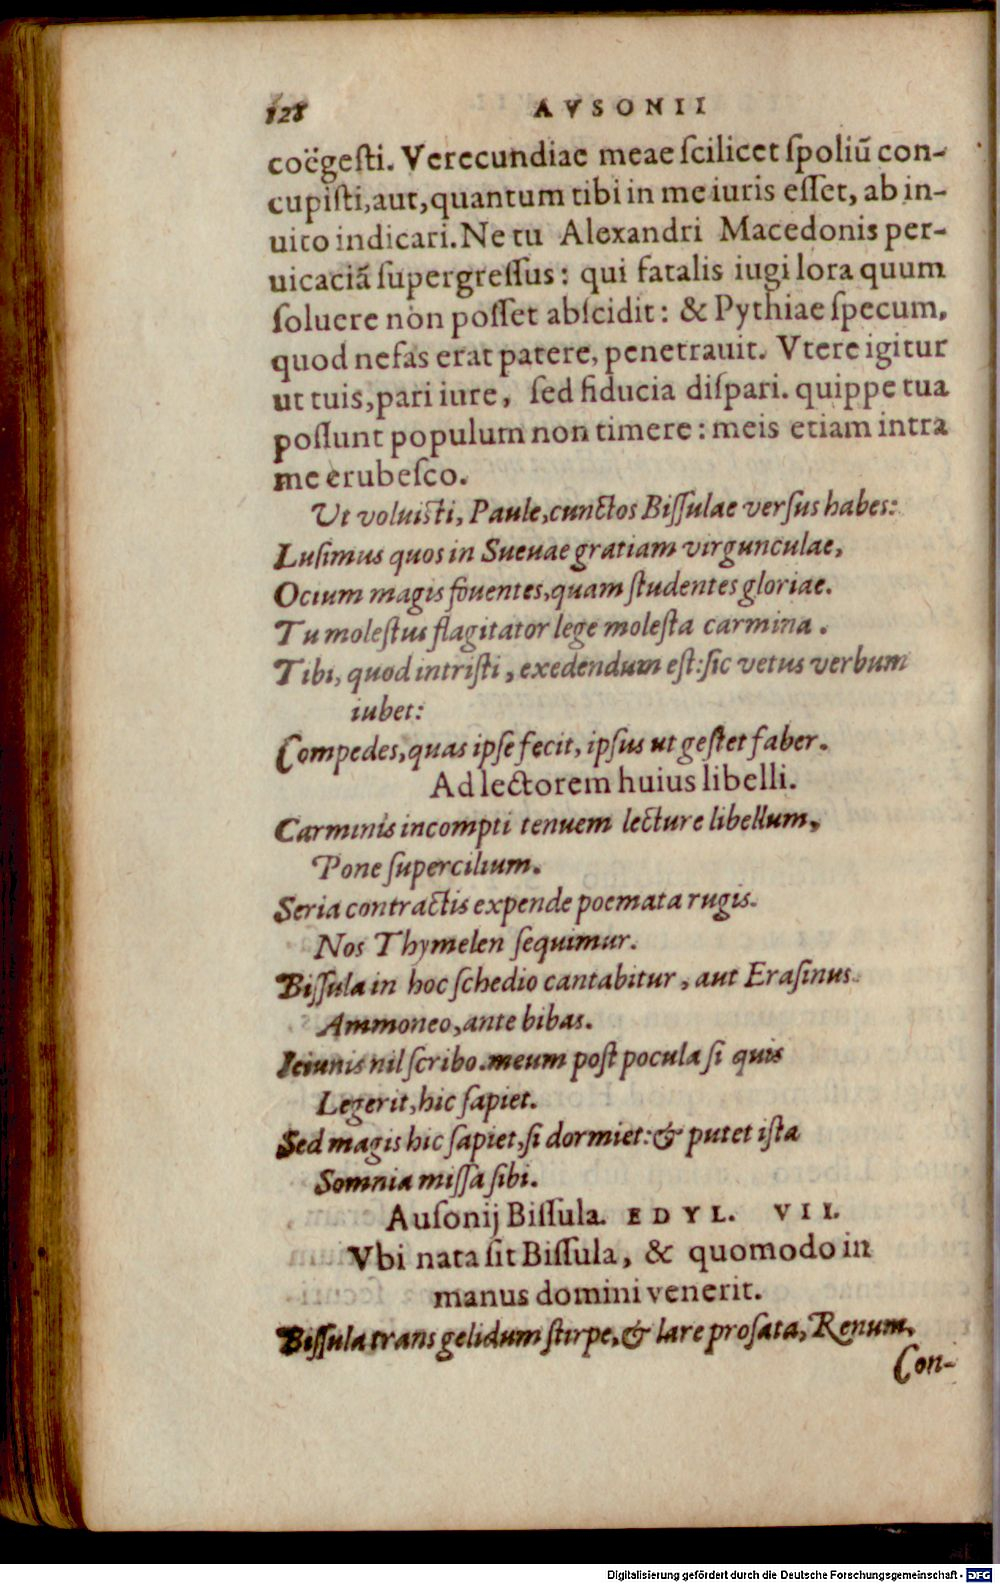 128 AVSONII
coëgeſti. Verecundiae meae ſcilicet ſpoliũ con-
cupiſti,aut,quantum tibi in me iuris eſſet, ab in-
uito indicari. Ne tu Alexandri Macedonis per-
uicaciã ſupergreſſus: qui fatalis iugi lora quum
ſoluere non poſſet abſcidit: & Pythiae ſpecum,
quod nefas erat patere, penetrauit. Vtere igitur
ut tuis,pari iure, ſed fiducia diſpari. quippe tua
poſſunt populum non timere: meis etiam intra
me erubeſco.
Ut voluisti, Paule,cunctos Biſſulae verſus habes:
Luſimus quos in Sueuae gratiam virgunculae,
Ocium magis fouentes,quam ſtudentes gloriae.
Tu moleſtus flagitator lege moleſta carmina.
Tibi, quod intriſti, exedendum eſt:ſic vetus verbum
iubet:
Compedes,quas ipſe fecit, ipſus ut geſtet faber.
Ad lectorem huius libelli.
Carminis incompti tenuem lecture libellum,
Pone ſupercilium.
Seria contractis expende poemata rugis.
Nos Thymelen ſequimur.
Biſſula in hoc ſchedio cantabitur, aut Eraſinus.
Ammoneo,ante bibas.
Ieiunis nil ſcribo.meum poſt pocula ſi quis
Legerit,hic ſapiet.
Sed magis hic ſapiet,ſi dormiet:& putet iſta
Somnia miſſa ſibi.
Auſonij Biſſula. EDYL. VII.
Vbi nata ſit Biſſula, & quomodo in
manus domini venerit.
Biſſula trans gelidum ſtirpe,& lare proſata, Renum,
Con-
Digitalisierung gefördert durch die Deutsche Forschungsgemeinschaft - DFG